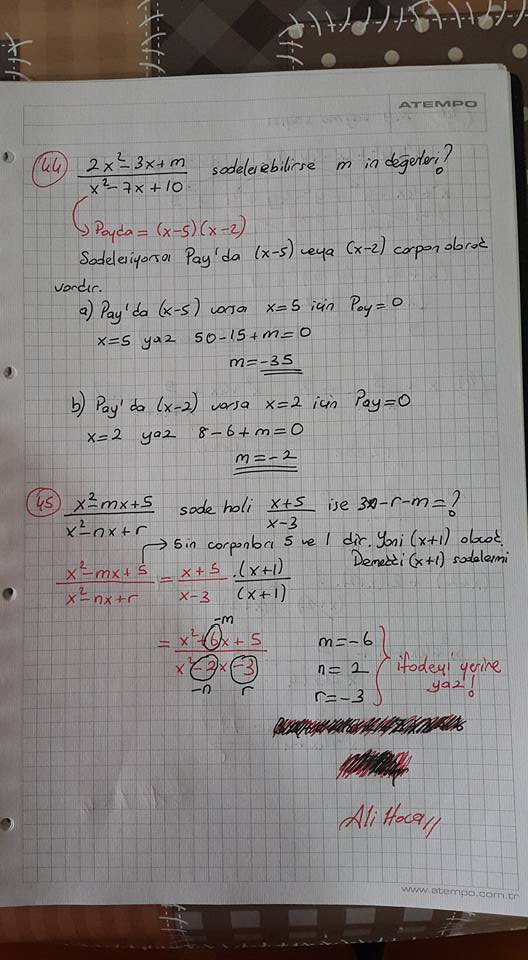 ATEMPO
44 (2x²-3x+m)/(x²-7x+10) sadeleşebilirse m in değerleri?
Payda = (x-5)(x-2)
Sadeleşiyorsa Pay'da (x-5) veya (x-2) çarpan olarak
vardır.
a) Pay'da (x-5) varsa x=5 için Pay=0
x=5 yaz 50-15+m=0
m=-35
b) Pay'da (x-2) varsa x=2 için Pay=0
x=2 yaz 8-6+m=0
m=-2
45 (x²-mx+5)/(x²-nx+r) sade hali (x+5)/(x-3) ise 3n-r-m=?
5 in çarpanları 5 ve 1 dir. Yani (x+1) olacak.
Demekki (x+1) sadeleşmiş
(x²-mx+5)/(x²-nx+r) = (x+5)/(x-3) · (x+1)/(x+1)
-m
= (x²+6x+5)/(x²-2x-3)
-n r
m=-6
n=2
r=-3
ifadeyi yerine
yaz!
Ali Hoca
www.atempo.com.tr